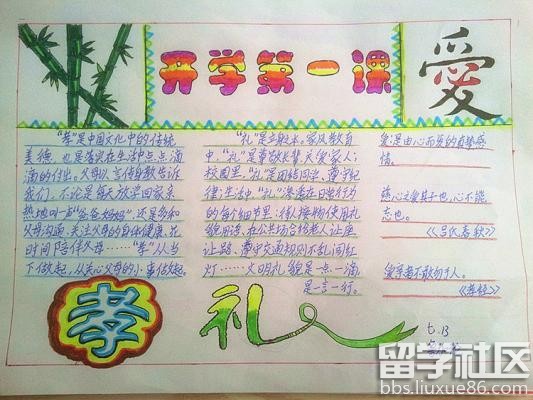 开学第一课
愛
“孝”是中国文化中的传统
美德，也是落实在生活中点点滴
滴的付出。父母以言传身教告诉
我们，不论是每天放学回家亲
热地叫一声“爸爸妈妈”，还是多和
父母沟通，关注父母的身体健康，花
时间陪伴父母……“孝”从当
下做起，从关心父母的小事做起。
“礼”是立身之本。家风教育
中，“礼”是尊敬长辈、关爱家人；
校园里，“礼”是团结同学、遵守纪
律；生活中，“礼”渗透在日常行为
的每个细节里：待人接物使用礼
貌用语、在公共场合给老人让座
让路、遵守交通规则不乱闯红
灯……文明礼貌是一点一滴
是一言一行。
爱：是由心而发的真挚感
情。
慈心之爱其子也，心不能
忘也。
《吕氏春秋》
爱亲者不敢勿于人。
《孝经》
孝
礼
七.13
留学社区
bbs.liuxue86.com